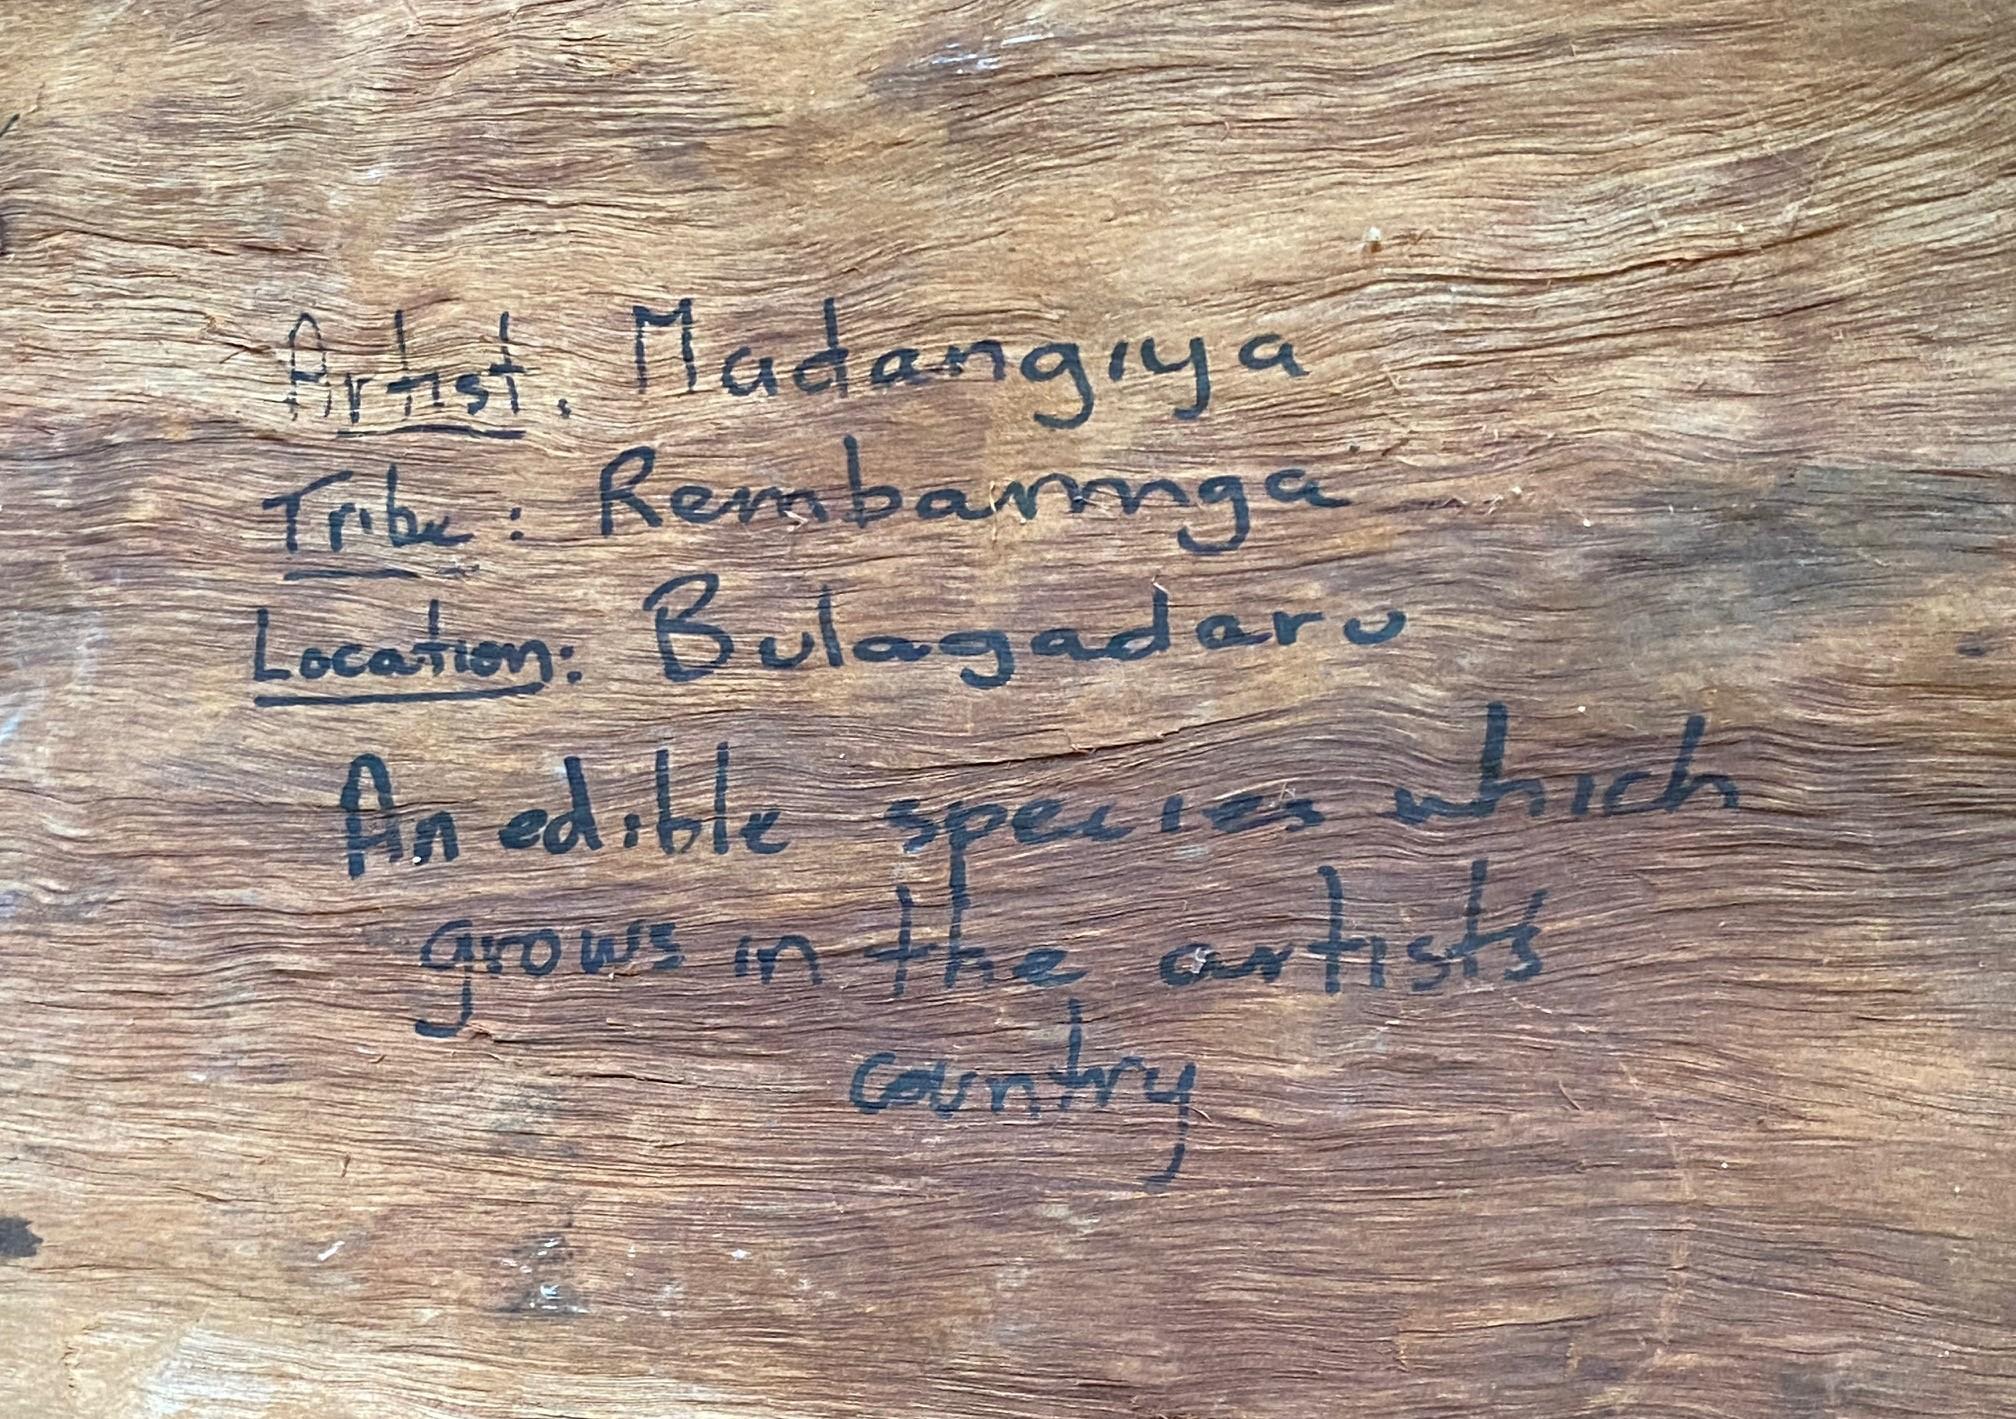 Artist: Madangiya
Tribe: Rembarnnga
Location: Bulagadaru
An edible species which
grows in the artists
country